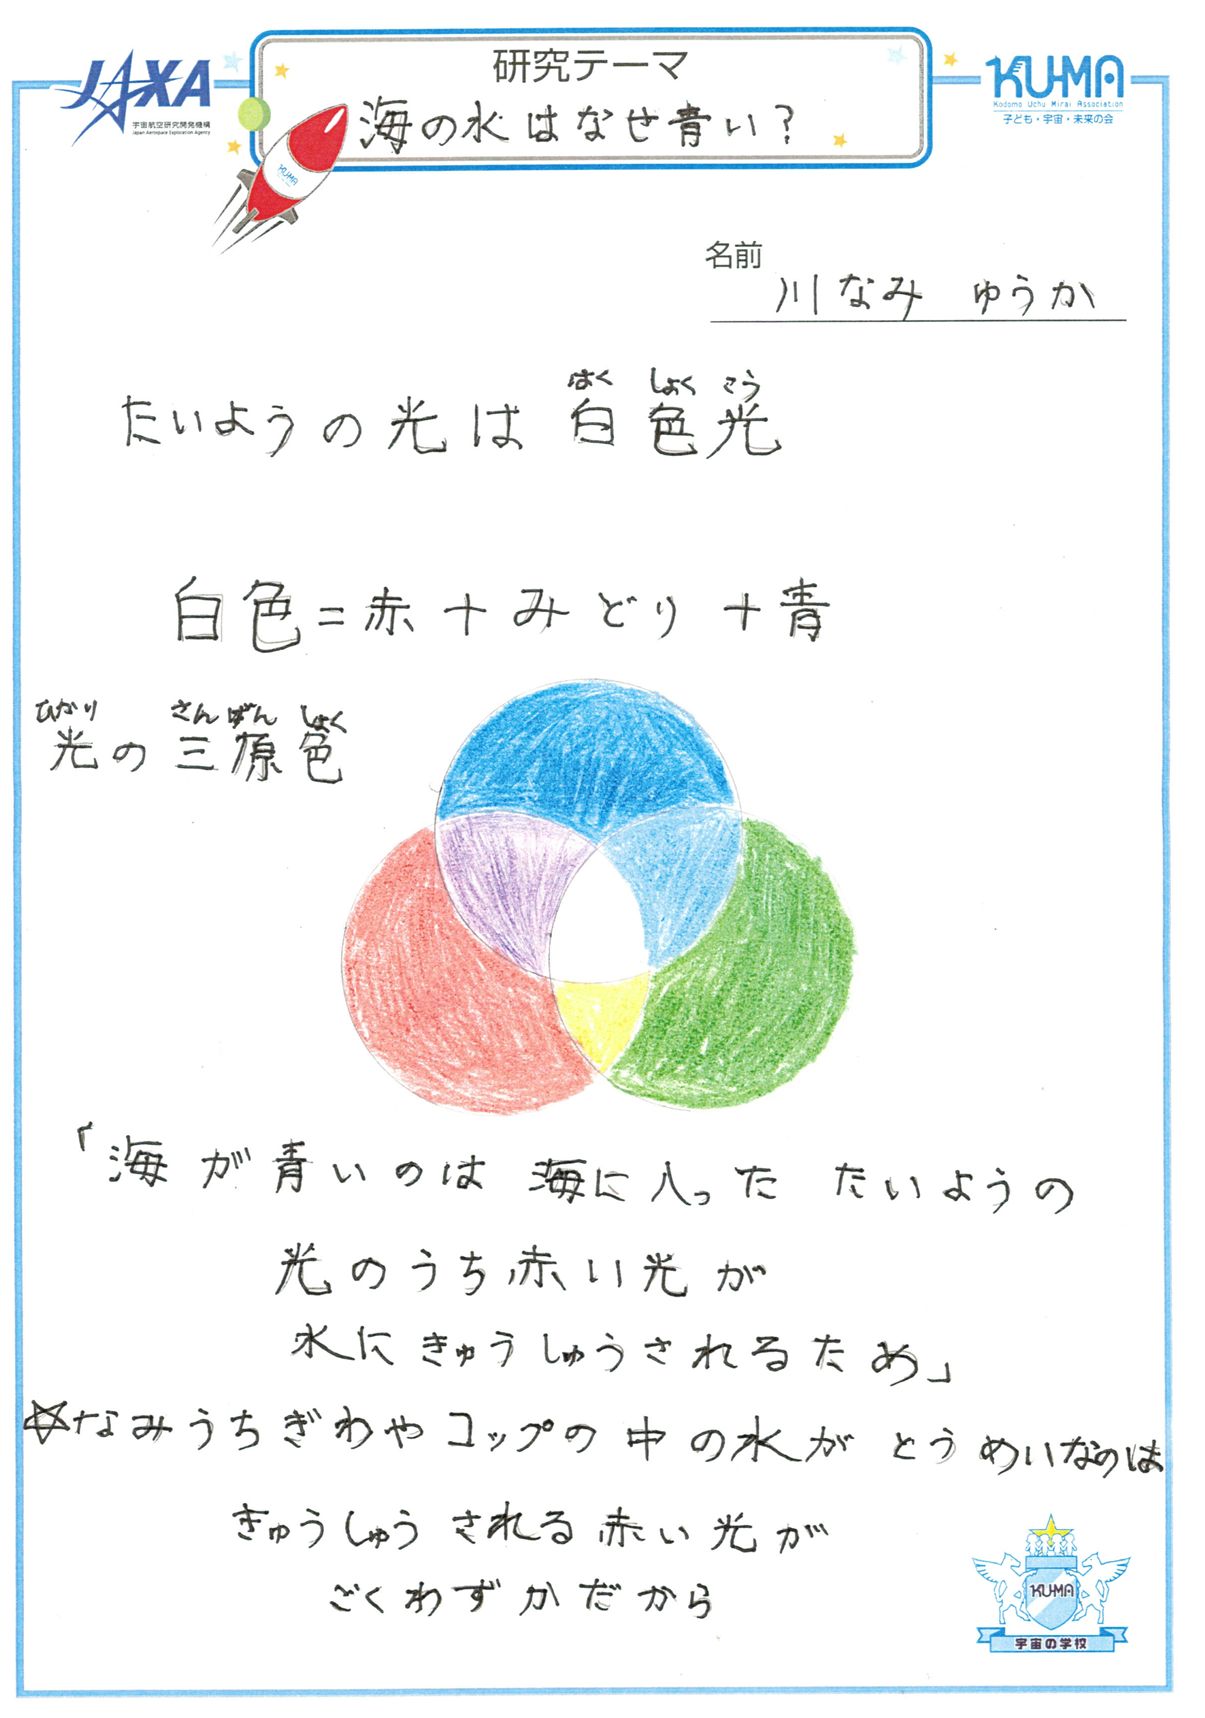 JAXA
宇宙航空研究開発機構
Japan Aerospace Exploration Agency
研究テーマ
海の水はなぜ青い?
KUMA
KU-MA
Kodomo Uchu Mirai Association
子ども・宇宙・未来の会
名前
川なみ ゆうか
はく しょく こう
たいようの光は 白色光
白色=赤+みどり+青
ひかり さんげん しょく
光の三原色
「海が青いのは 海に入った たいようの
光のうち赤い光が
水にきゅうしゅうされるため」
☆なみうちぎわやコップの中の水がとうめいなのは
きゅうしゅうされる赤い光が
ごくわずかだから
KU-MA
宇宙の学校